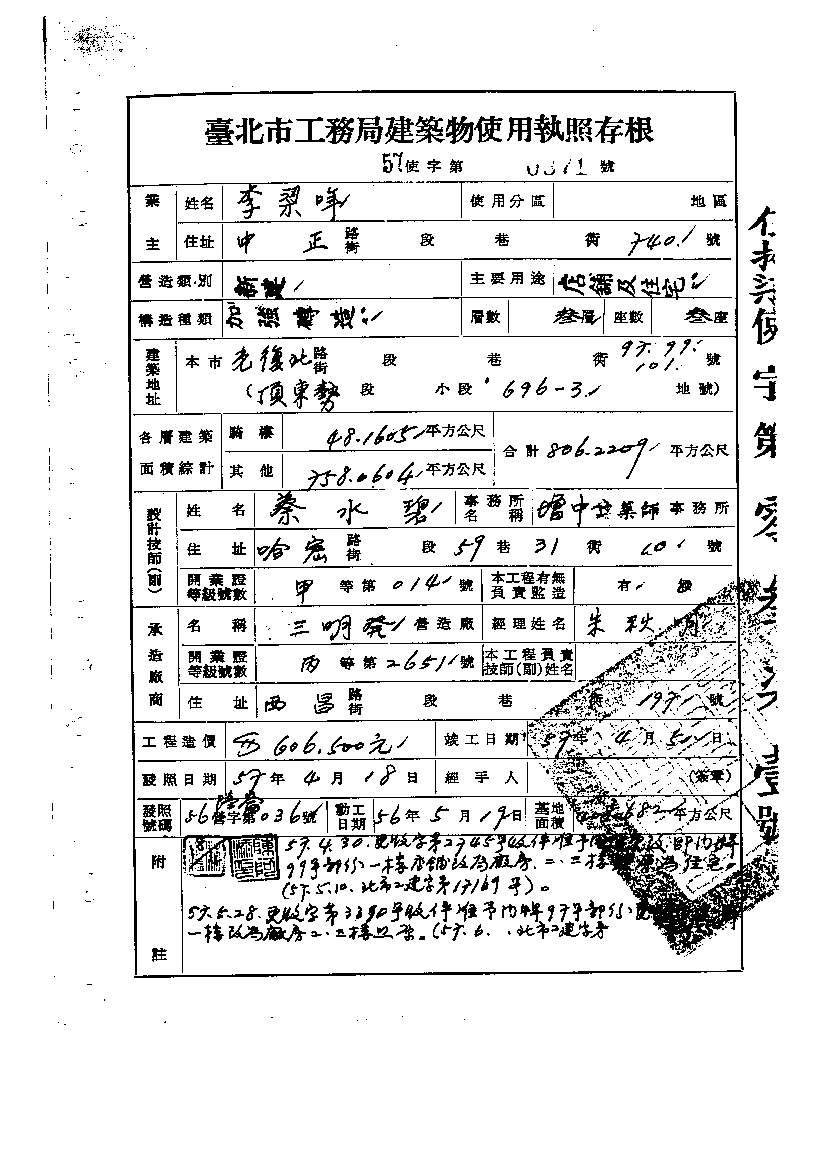 臺北市工務局建築物使用執照存根
57使字第 0371 號
業主 姓名 李 使用分區 地區
住址 中正 路街 段 巷 衖 740 號
營造類別 新建 主要用途 店舖及住宅
構造種類 加強磚造 層數 叁層 座數 叁座
建築地址 本市 光復北 路街 段 巷 衖 97.99.101. 號
(頂東勢 段 小段 696-3 地號)
各層建築面積綜計 騎樓 48.1605 平方公尺 合計 806.2209 平方公尺
其他 758.0604 平方公尺
設計技師(副) 姓名 蔡水碧 事務所名稱 建築師 事務所
住址 哈密 路街 段 59 巷 31 衖 號
開業證等級號數 甲 等第 014 號 本工程有無負責監造 有
承造廠商 名稱 三明發 營造廠 經理姓名 朱秋
開業證等級號數 丙 等第 2651 號 本工程負責技師(副)姓名
住址 西昌 路街 段 巷 衖 197 號
工程造價 606.500元 竣工日期 57年 4月 5日
發照日期 57年 4月 18日 經手人 (簽章)
發照號碼 56 營字第 036 號 動工日期 56年 5月 19日 基地面積 平方公尺
附註 57.4.30. 收字第2745號收件准予
99號部份一樓店舖改為廠房、二、三樓 為住宅。
(57.5.10. 北市工建字第17169號)。
57.5.28. 收字第3390號收件准予內牌97號部份
一樓改為廠房二、三樓 。(57.6. . 北市工建字第
使字第零叁柒壹號